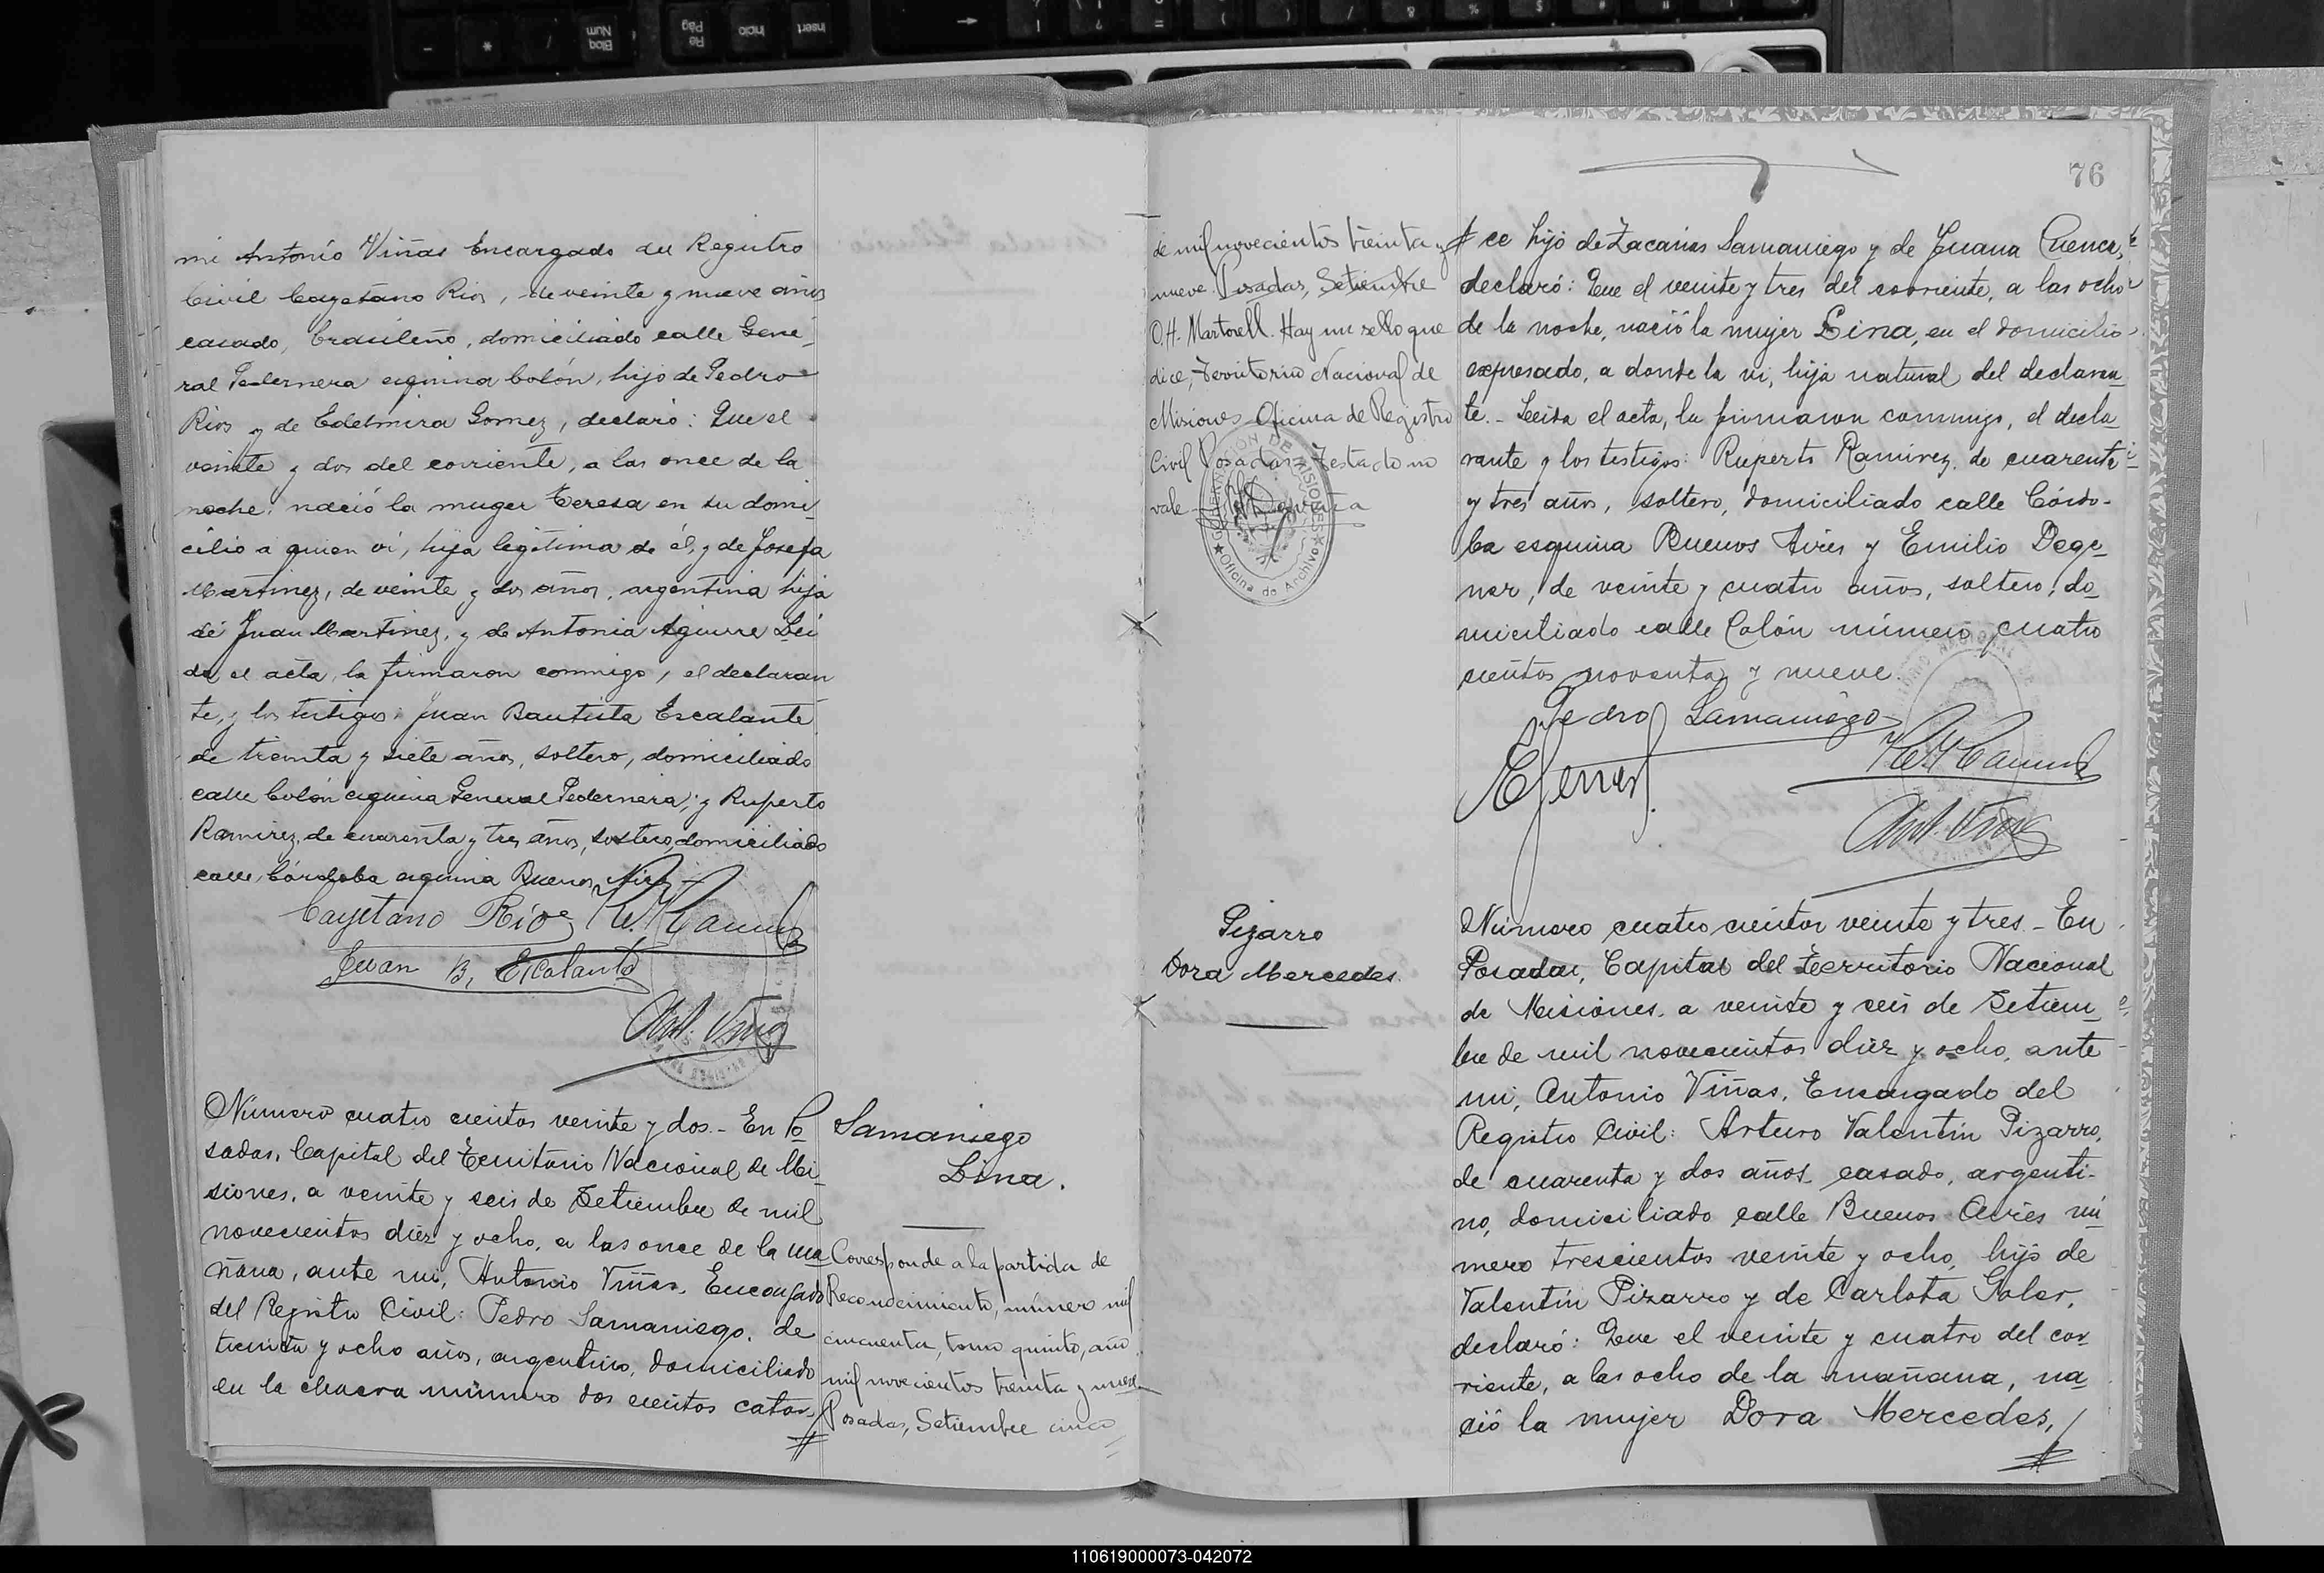 mi Antonio Viñas Encargado del Registro
Civil Cayetano Rios, de veinte y nueve años
casado, brasileño, domiciliado calle Gene
ral Pedernera esquina Colón, hijo de Pedro
Rios y de Edelmira Gomez, declaró: Que el
veinte y dos del corriente, a las once de la
noche nació la muger Teresa en su domi
cilio a quien vi, hija legítima de él, y de Josefa
Martinez, de veinte y dos años, argentina hija
de Juan Martinez, y de Antonia Aguirre Lei
da el acta, la firmaron conmigo, el declaran
te, y los testigos: Juan Bautista Escalante
de treinta y siete años, soltero, domiciliado
calle Colón esquina General Pedernera; y Ruperto
Ramirez, de cuarenta y tres años, soltero, domiciliado
calle Córdoba esquina Buenos Aires
Cayetano Rios
Juan B. Escalante
Ant. Viñas
Número cuatro cientos veinte y dos.- En Po
sadas, Capital del Territorio Nacional de Mi
siones, a veinte y seis de Setiembre de mil
novecientos diez y ocho, a las once de la ma
ñana, ante mi, Antonio Viñas, Encargado
del Registro Civil: Pedro Samaniego, de
treinta y ocho años, argentino, domiciliado
en la chacra número dos cientos cator
Samaniego
Lina.
Corresponde a la partida de
Reconocimiento, número mil
cincuenta, tomo quinto, año
mil novecientos treinta y nueve
Posadas, Setiembre cinco
de mil novecientos treinta y
nueve. Posadas, Setiembre
O.H. Martorell. Hay un sello que
dice, Territorio Nacional de
Misiones Oficina de Registro
Civil Posadas. Testado no
vale
GOBERNACION DE MISIONES
Oficina de Archivo
76
ce hijo de Zacarias Samaniego y de Juana Cuenca,
declaró: Que el veinte y tres del corriente, a las ocho
de la noche, nació la mujer Lina, en el domicilio
expresado, a donde la vi, hija natural del declaran
te.- Leida el acta, la firmaron conmigo, el decla
rante y los testigos: Ruperto Ramirez, de cuarenta
y tres años, soltero, domiciliado calle Córdo-
ba esquina Buenos Aires y Emilio Dege
ner, de veinte y cuatro años, soltero, do
miciliado calle Colón número cuatro
cientos noventa y nueve.
Pedro Samaniego
Ant. Viñas
Pizarro
Dora Mercedes.
Número cuatro cientos veinte y tres - En
Posadas, Capital del Territorio Nacional
de Misiones, a veinte y seis de Setiem
bre de mil novecientos diez y ocho, ante
mi, Antonio Viñas, Encargado del
Registro Civil: Arturo Valentín Pizarro,
de cuarenta y dos años, casado, argenti-
no, domiciliado calle Buenos Aires nú
mero trescientos veinte y ocho, hijo de
Valentín Pizarro y de Carlota Soler,
declaró: Que el veinte y cuatro del cor
riente, a las ocho de la mañana, na
ció la mujer Dora Mercedes,
110619000073-042072